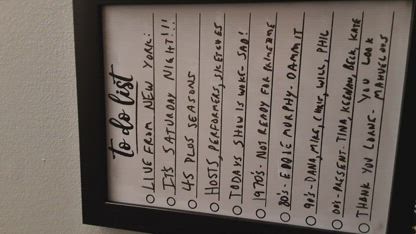 to do list
LIVE FROM NEW YORK:
IT'S SATURDAY NIGHT!!!
45 PLUS SEASONS
HOSTS, PERFORMERS, SKETCHES
TODAYS SHOW IS WOKE- SAD!
1970'S- NOT READY FOR PRIMETIME
80'S- EDDIE MURPHY- DAMMIT
90'S- DANA, MIKE, CHRIS, WILL, PHIL
00'S- PRESENT- TINA, KEENAN, BECK, KATE
THANK YOU LORNE- YOU LOOK
MARVELOUS